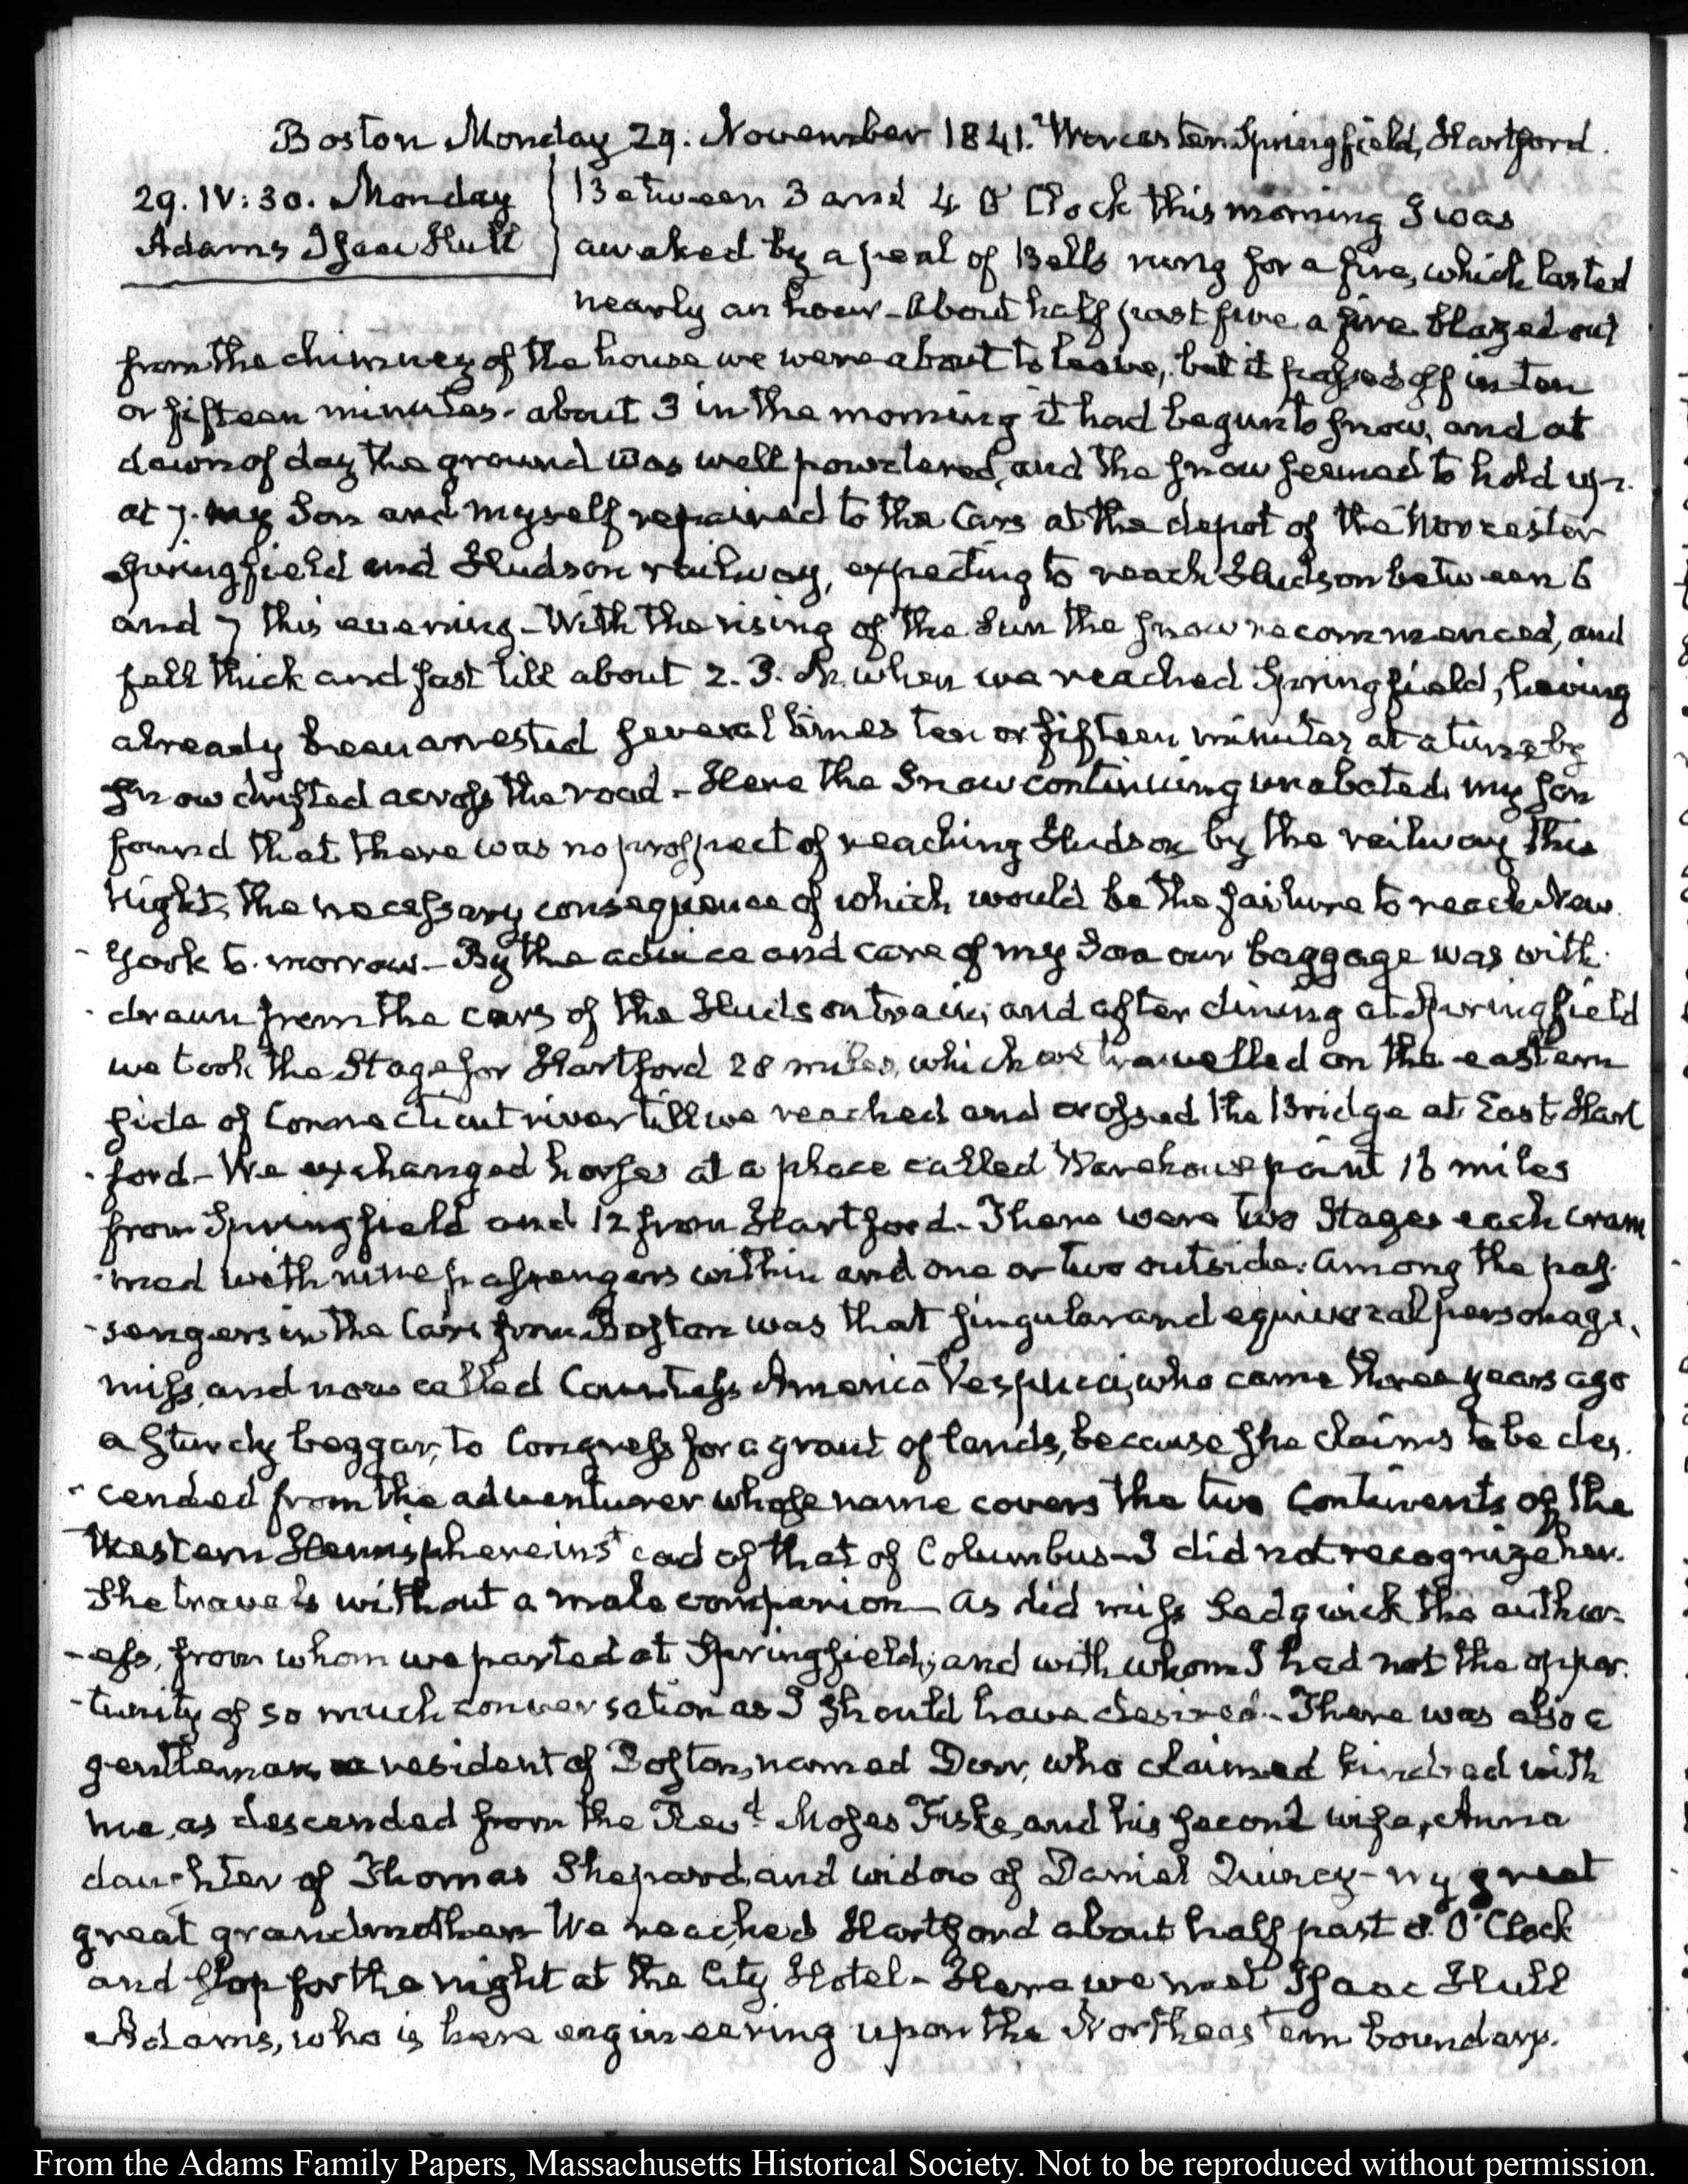 Boston Monday 29. November 1841. Worcester Springfield, Hartford.
29. IV: 30. Monday
Adams Isaac Hull
Between 3 and 4 O'Clock this morning I was
awaked by a peal of Bells rung for a fire, which lasted
nearly an hour - About half past five a fire blazed out
from the chimney of the house we were about to leave, but it passed off in ten
or fifteen minutes - about 3 in the morning it had begun to snow, and at
dawn of day the ground was well powdered, and the snow seemed to hold up.
at 7. my Son and myself repaired to the Cars at the depot of the Worcester
Springfield and Hudson railway, expecting to reach Hudson between 6
and 7 this evening - With the rising of the Sun the snow recommenced, and
fell thick and fast till about 2. P. M. when we reached Springfield, having
already been arrested several times ten or fifteen minutes at a time by
snow drifted across the road - Here the Snow continuing unabated my Son
found that there was no prospect of reaching Hudson by the railway this
Night, the necessary consequence of which would be the failure to reach New
York to-morrow - By the advice and care of my Son our baggage was with-
drawn from the cars of the Hudson train; and after dining at Springfield
we took the Stage for Hartford 28 miles, which we travelled on the eastern
side of Connecticut river till we reached and crossed the Bridge at East Hart
-ford - We exchanged horses at a place called Warehouse point 16 miles
from Springfield and 12 from Hartford - There were two Stages each cram
-med with nine passengers within and one or two outside. Among the pas-
-sengers in the Cars from Boston was that singular and equivocal personage,
miss, and now called Countess America Vespucci, who came three years ago
a sturdy beggar, to Congress for a grant of lands, because she claims to be des-
-cended from the adventurer whose name covers the two Continents of the
Western Hemisphere instead of that of Columbus - I did not recognize her.
She travels without a male companion - as did miss Sedgwick the author-
-ess, from whom we parted at Springfield; and with whom I had not the oppor-
-tunity of so much conversation as I should have desired - There was also a
gentleman a resident of Boston, named Dorr, who claimed kindred with
me, as descended from the Revd. Moses Fiske, and his second wife, Anna
daughter of Thomas Shepard, and widow of Daniel Quincy - my great
great grandmother - We reached Hartford about half past 8. O'Clock
and stop for the night at the City Hotel - Here we met Isaac Hull
Adams, who is here engineering upon the Northeastern boundary.
From the Adams Family Papers, Massachusetts Historical Society. Not to be reproduced without permission.